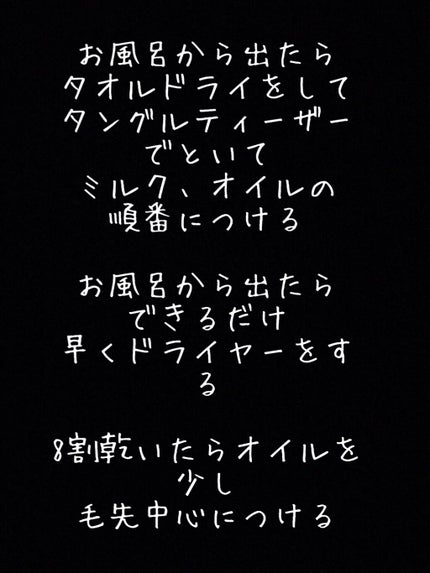 お風呂から出たら
タオルドライをして
タングルティーザー
でといて
ミルク、オイルの
順番につける
お風呂から出たら
できるだけ
早くドライヤーをす
る
8割乾いたらオイルを
少し
毛先中心につける